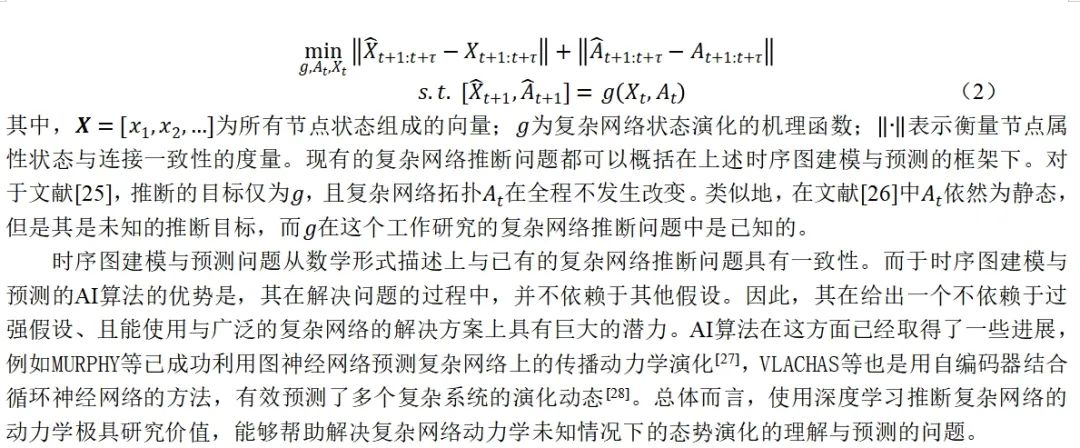 min ‖X̂_{t+1:t+τ} − X_{t+1:t+τ}‖ + ‖Â_{t+1:t+τ} − A_{t+1:t+τ}‖
g,A_t,X_t
s.t. [X̂_{t+1}, Â_{t+1}] = g(X_t, A_t) （2）
其中，X = [x_1, x_2, …]为所有节点状态组成的向量；g为复杂网络状态演化的机理函数；‖·‖表示衡量节点属
性状态与连接一致性的度量。现有的复杂网络推断问题都可以概括在上述时序图建模与预测的框架下。对
于文献[25]，推断的目标仅为g，且复杂网络拓扑A_t在全程不发生改变。类似地，在文献[26]中A_t依然为静态，
但是其是未知的推断目标，而g在这个工作研究的复杂网络推断问题中是已知的。
时序图建模与预测问题从数学形式描述上与已有的复杂网络推断问题具有一致性。而于时序图建模与
预测的AI算法的优势是，其在解决问题的过程中，并不依赖于其他假设。因此，其在给出一个不依赖于过
强假设、且能使用与广泛的复杂网络的解决方案上具有巨大的潜力。AI算法在这方面已经取得了一些进展，
例如MURPHY等已成功利用图神经网络预测复杂网络上的传播动力学演化[27]，VLACHAS等也是用自编码器结合
循环神经网络的方法，有效预测了多个复杂系统的演化动态[28]。总体而言，使用深度学习推断复杂网络的
动力学极具研究价值，能够帮助解决复杂网络动力学未知情况下的态势演化的理解与预测的问题。